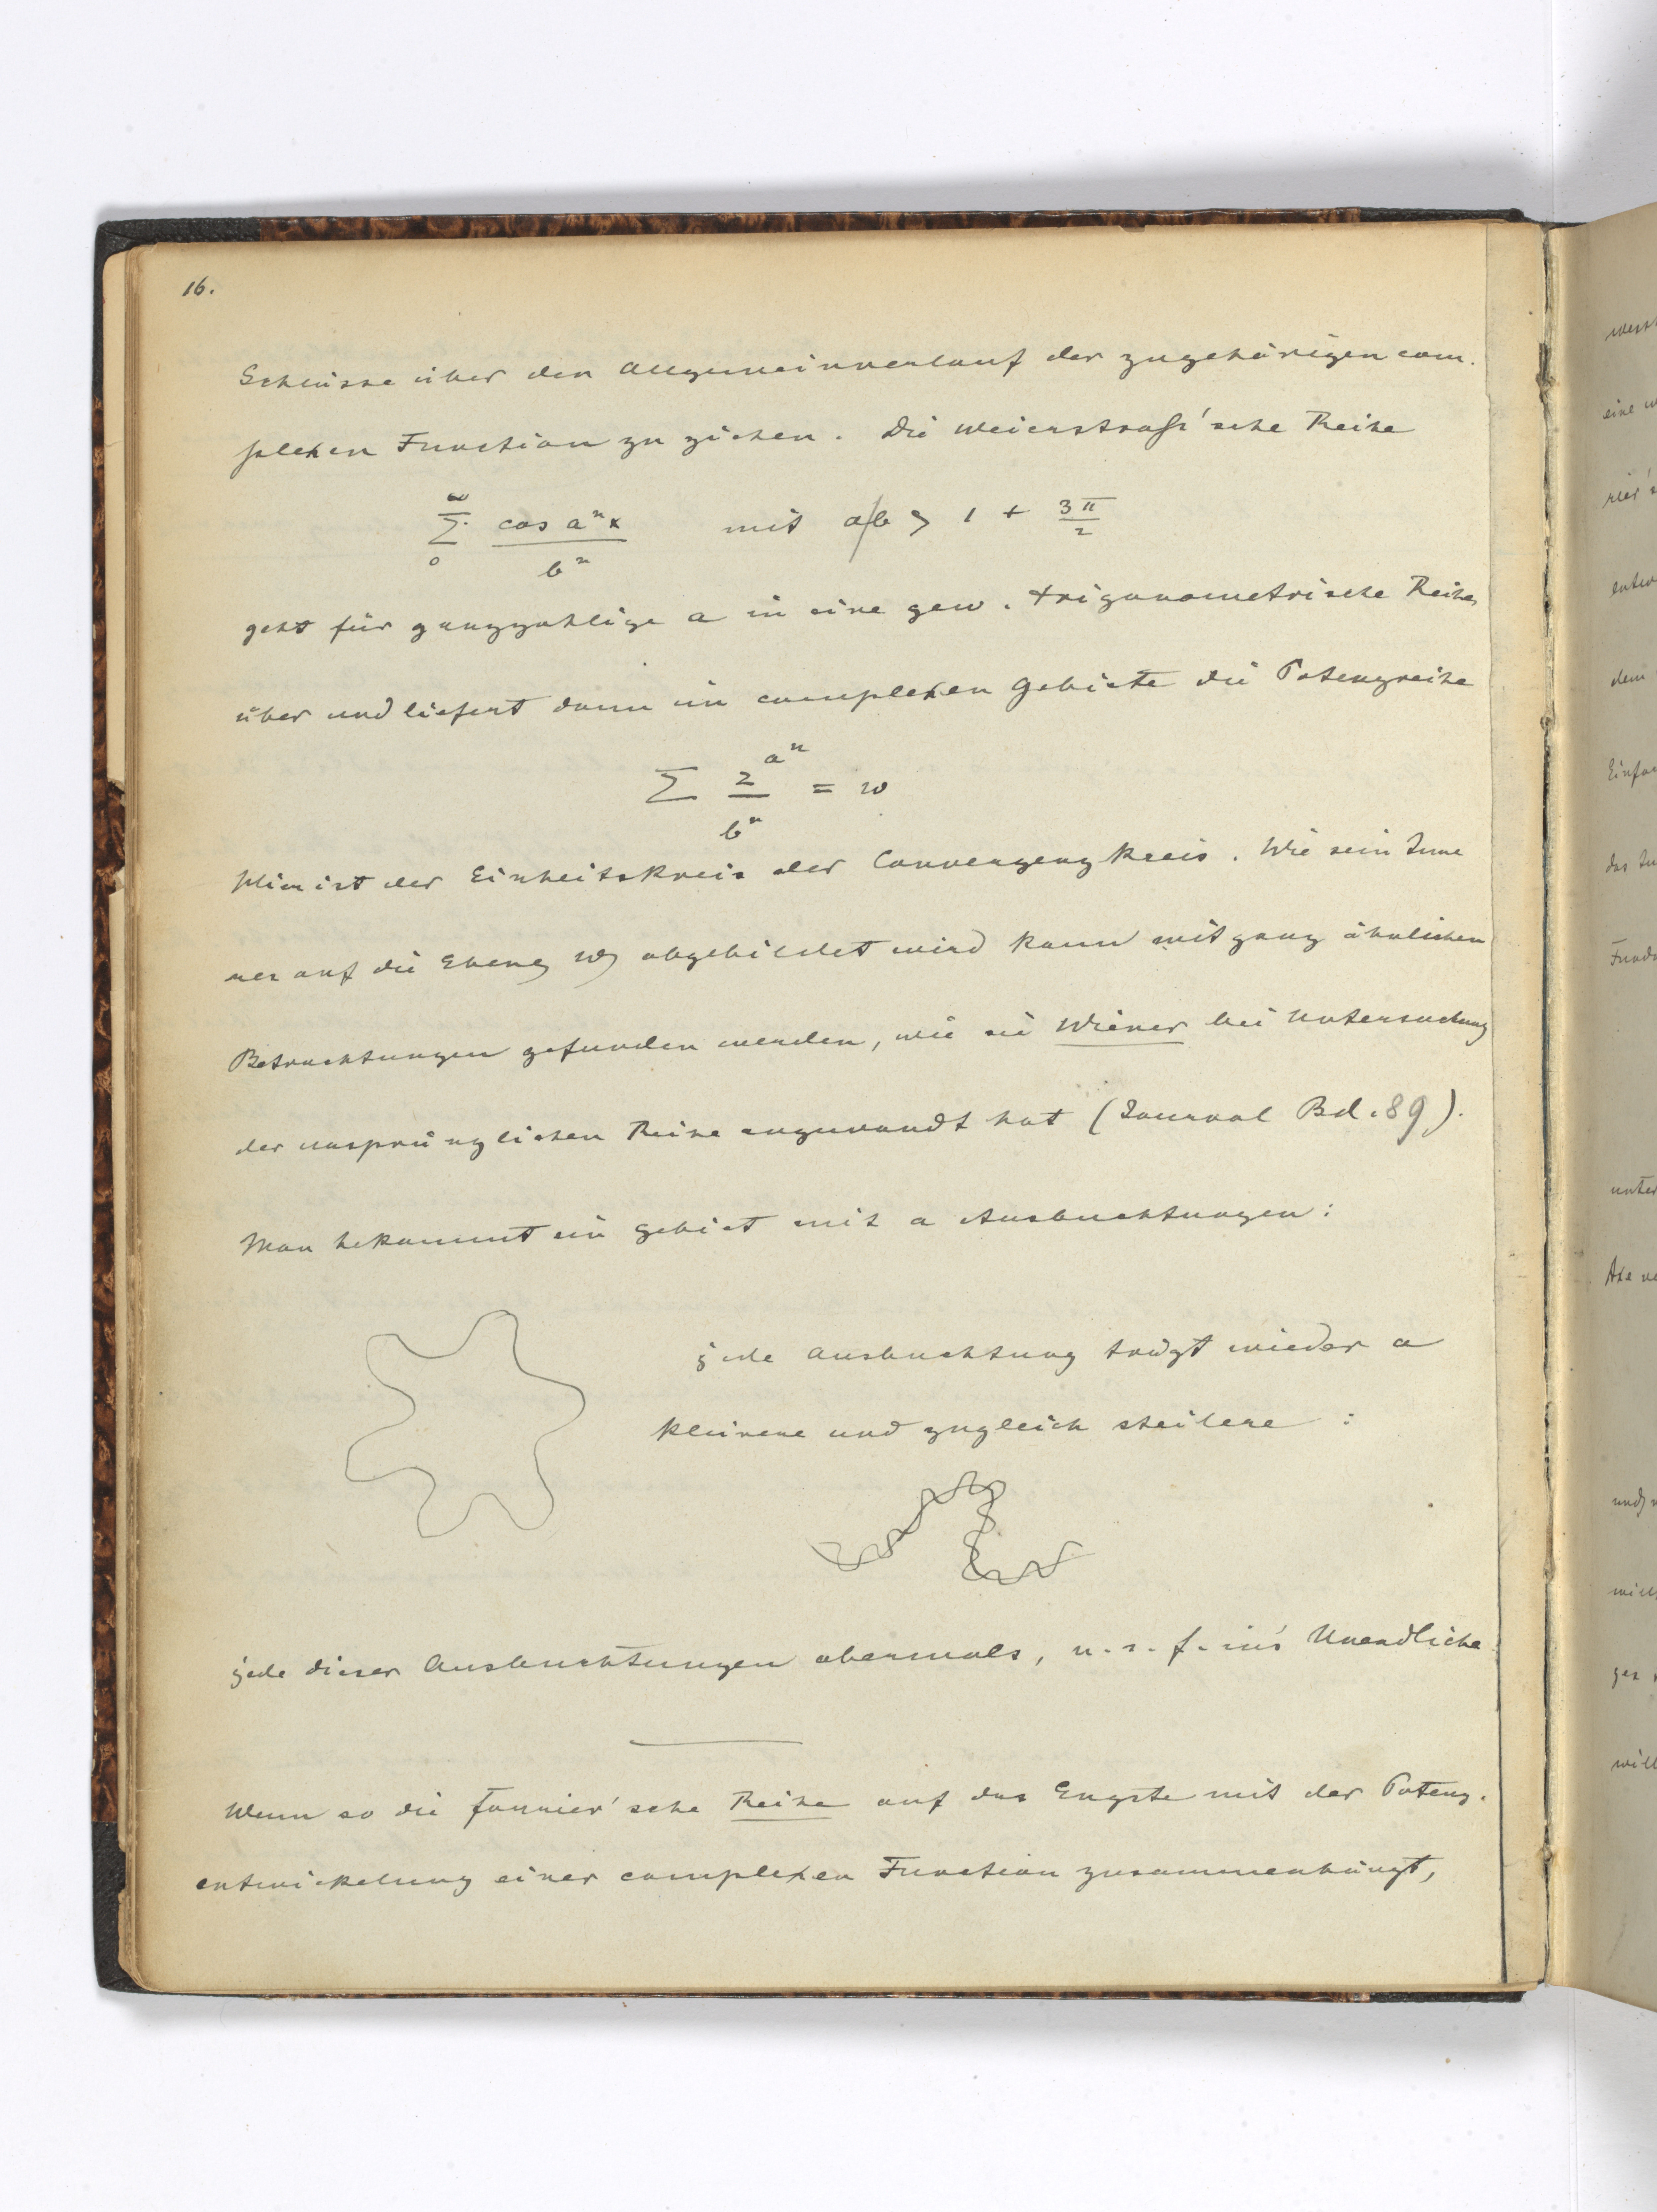 16.
Schlüsse über den Allgemeinverlauf der zugehörigen com-
plexen Function zu ziehen. Die Weierstraß'sche Reihe
∞ ∑ 0 cos aⁿx / bⁿ mit a/b > 1 + 3π/2
geht für ganzzahlige a in eine gew. trigonometrische Reihe
über und liefert dann im complexen Gebiete die Potenzreihe
∑ z^(aⁿ) / bⁿ = w
Hier ist der Einheitskreis der Convergenzkreis. Wie sein Inne
res auf die Ebene w abgebildet wird kann mit ganz ähnlichen
Betrachtungen gefunden werden, wie sie Wiener bei Untersuchung
der ursprünglichen Reihe angewandt hat (Journal Bd. 89).
Man bekommt ein Gebiet mit a Ausbuchtungen:
jede Ausbuchtung trägt wieder a
kleinere und zugleich steilere :
jede dieser Ausbuchtungen abermals, u. s. f. in's Unendliche
Wenn so die Fourier'sche Reihe auf das Engste mit der Potenz-
entwickelung einer complexen Function zusammenhängt,